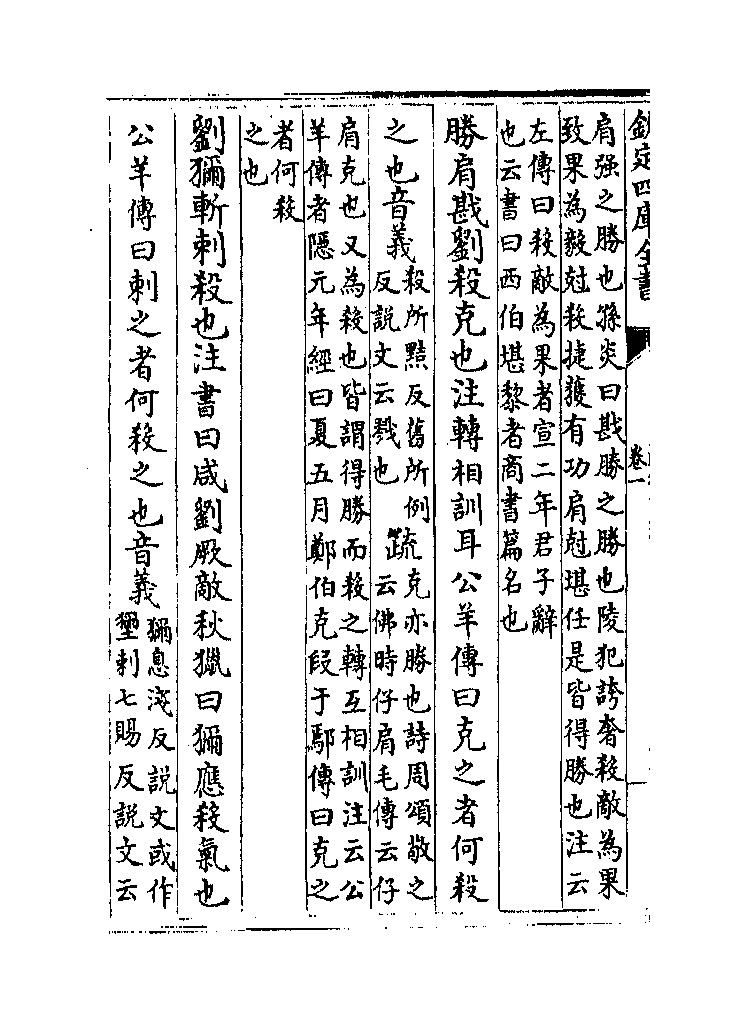 欽定四庫全書
卷一
肩强之勝也孫炎曰戡勝之勝也陵犯誇奢殺敵為果
致果為毅尅殺捷獲有功肩尅堪任是皆得勝也注云
左傳曰殺敵為果者宣二年君子辭
也云書曰西伯堪黎者商書篇名也
勝肩戡劉殺克也注轉相訓耳公羊傳曰克之者何殺
之也音義
殺所黠反舊所例
反説文云戮也
疏
克亦勝也詩周頌敬之
云佛時仔肩毛傳云仔
肩克也又為殺也皆謂得勝而殺之轉互相訓注云公
羊傳者隱元年經曰夏五月鄭伯克段于鄢傳曰克之
者何殺
之也
劉獮斬刺殺也注書曰咸劉厥敵秋獵曰獮應殺氣也
公羊傳曰刺之者何殺之也音義
獮息淺反説文或作
𤣔刺七賜反説文云